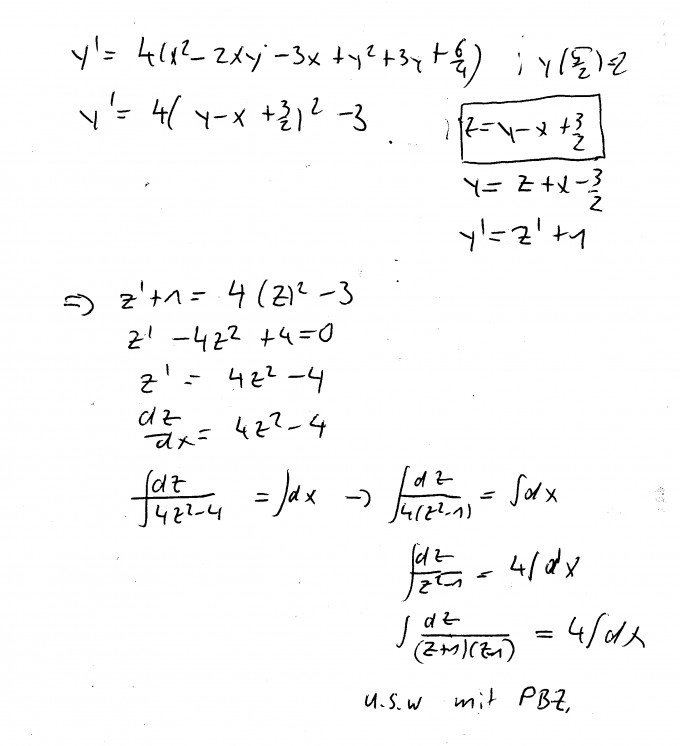 y' = 4(x² - 2xy - 3x + y² + 3y + 6/4) ; y(5/2)=2
y' = 4( y-x + 3/2)² - 3 ; z = y-x + 3/2
y = z + x - 3/2
y' = z' + 1
⇒ z' + 1 = 4 (z)² - 3
z' - 4z² + 4 = 0
z' = 4z² - 4
dz/dx = 4z² - 4
∫ dz/(4z²-4) = ∫dx → ∫ dz/(4(z²-1)) = ∫dx
∫ dz/(z²-1) = 4∫dx
∫ dz/((z+1)(z-1)) = 4∫dx
u.s.w mit PBZ.